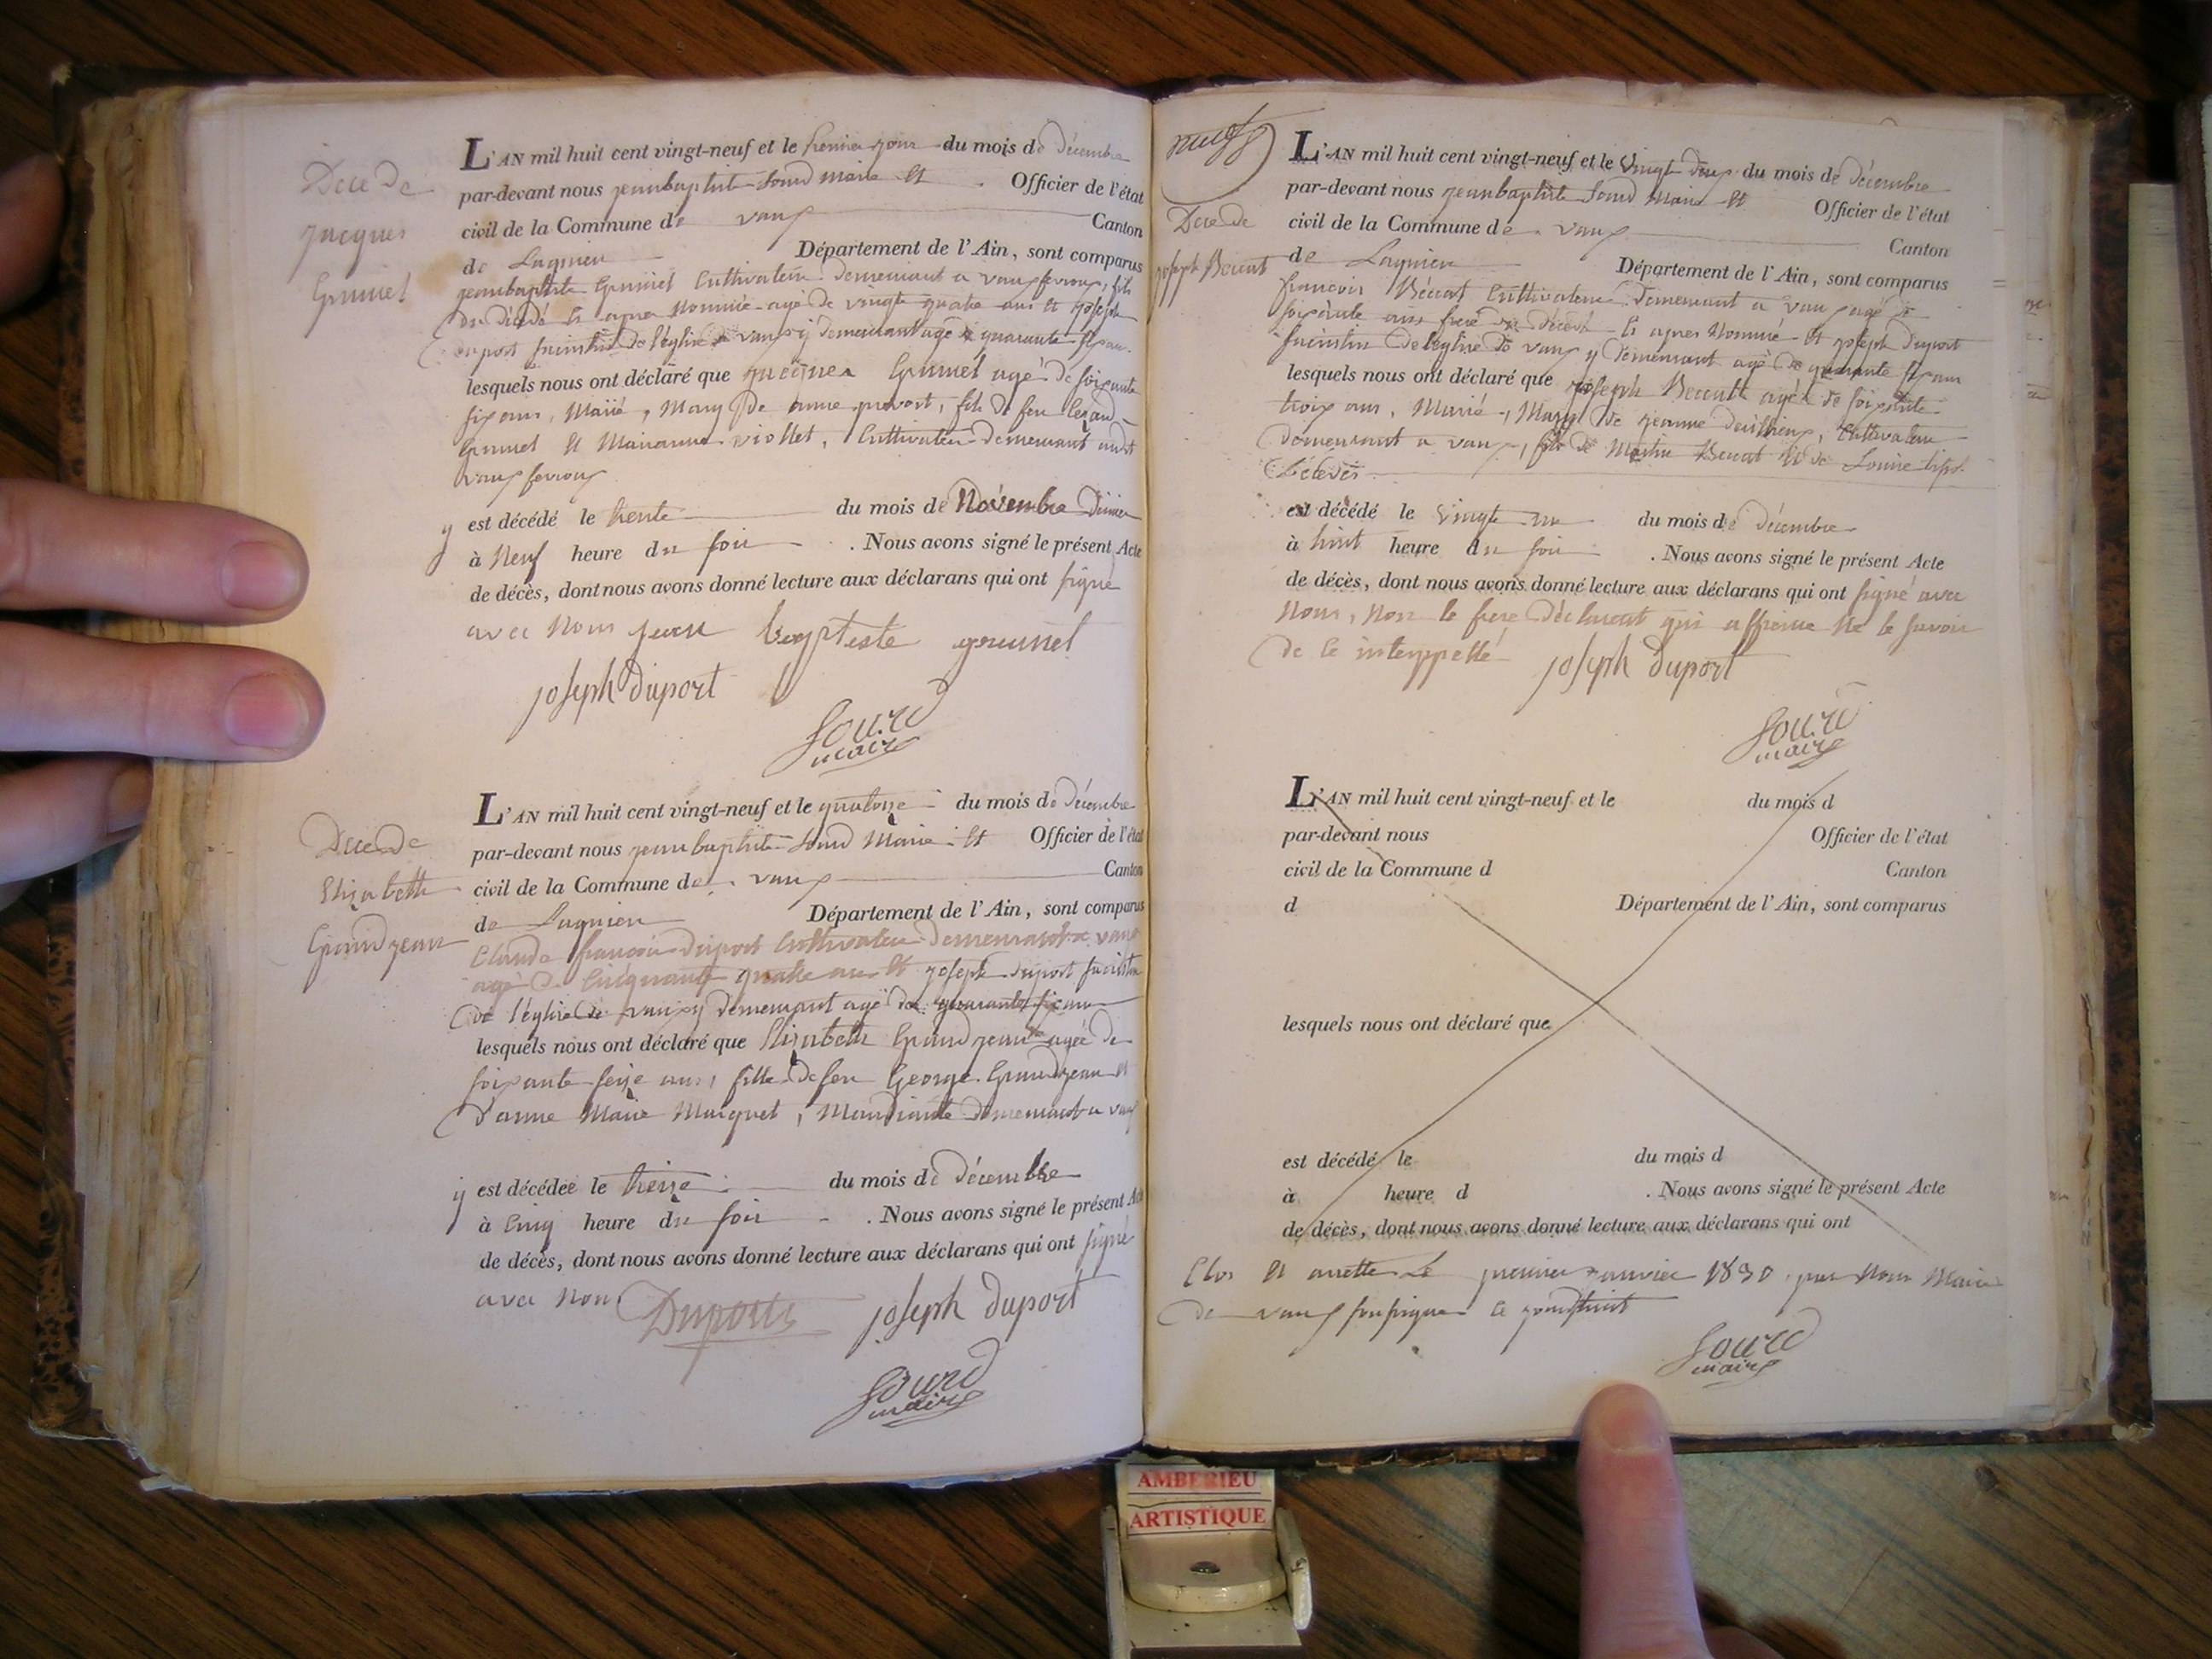 Décé de
Jacques
Grumet
L'AN mil huit cent vingt-neuf et le premier jour du mois de décembre
par-devant nous jeanbaptiste Sourd Maire et Officier de l'état
civil de la Commune de vaux Canton
de Lagnieu Département de l'Ain, sont comparus
jeanbaptiste Grumet Cultivateur demeurant a vaux fevroux, fils
du décédé ci apres Nommé agé de vingt quatre ans et joseph
duport de l'église de vaux y demeurant agé de quarante six ans
lesquels nous ont déclaré que jacques Grumet agé de soixante
six ans, Marié, Mary de anne provost, fils de feu
Grumet et Marianne viollet, Cultivateur demeurant audt
vaux fevroux
y est décédé le trente du mois de Novembre dernier
à Neuf heure du soir . Nous avons signé le présent Acte
de décès, dont nous avons donné lecture aux déclarans qui ont signé
avec Nous jean baptiste grumet
joseph duport
Sourd
maire
Décé de
Elizabeth
Grandjean
L'AN mil huit cent vingt-neuf et le quatorze du mois de décembre
par-devant nous jeanbaptiste Sourd Maire et Officier de l'état
civil de la Commune de vaux Canton
de Lagnieu Département de l'Ain, sont comparus
Claude francois duport Cultivateur demeurant a vaux
agé de Cinquante quatre ans et joseph duport
de l'église de vaux y demeurant agé de quarante six ans
lesquels nous ont déclaré que Elizabeth Grandjean agée de
soixante seize ans, fille de feu George Grandjean et
d'anne Marie Marquet, Mandiante demeurant a vaux
y est décédée le treize du mois de décembre
à Cinq heure du soir . Nous avons signé le présent Acte
de décès, dont nous avons donné lecture aux déclarans qui ont signé
avec Nous Duport joseph duport
Sourd
maire
neuf
Décé de
joseph Beccat
L'AN mil huit cent vingt-neuf et le vingt deux du mois de décembre
par-devant nous jeanbaptiste Sourd Maire et Officier de l'état
civil de la Commune de vaux Canton
de Lagnieu Département de l'Ain, sont comparus
francois Beccat Cultivateur demeurant a vaux agé de
soixante ans frere du décédé ci apres Nommé et joseph duport
de l'église de vaux y demeurant agé de quarante six ans
lesquels nous ont déclaré que joseph Beccat agé de soixante
trois ans, Marié, Mary de jeanne Cultivateur
demeurant a vaux, fils de Martin Beccat et de Louise
décédés
est décédé le vingt un du mois de décembre
à huit heure du soir . Nous avons signé le présent Acte
de décès, dont nous avons donné lecture aux déclarans qui ont signé avec
Nous, Non le frere déclarant qui affirme Ne le savoir
de ce interppellé joseph duport
Sourd
maire
L'AN mil huit cent vingt-neuf et le du mois d
par-devant nous Officier de l'état
civil de la Commune d Canton
d Département de l'Ain, sont comparus
lesquels nous ont déclaré que
est décédé le du mois d
à heure d . Nous avons signé le présent Acte
de décès, dont nous avons donné lecture aux déclarans qui ont
Clos et arretté Le premier janvier 1830 par Nous Maire
de vaux soussigné ce
Sourd
maire
AMBERIEU
ARTISTIQUE